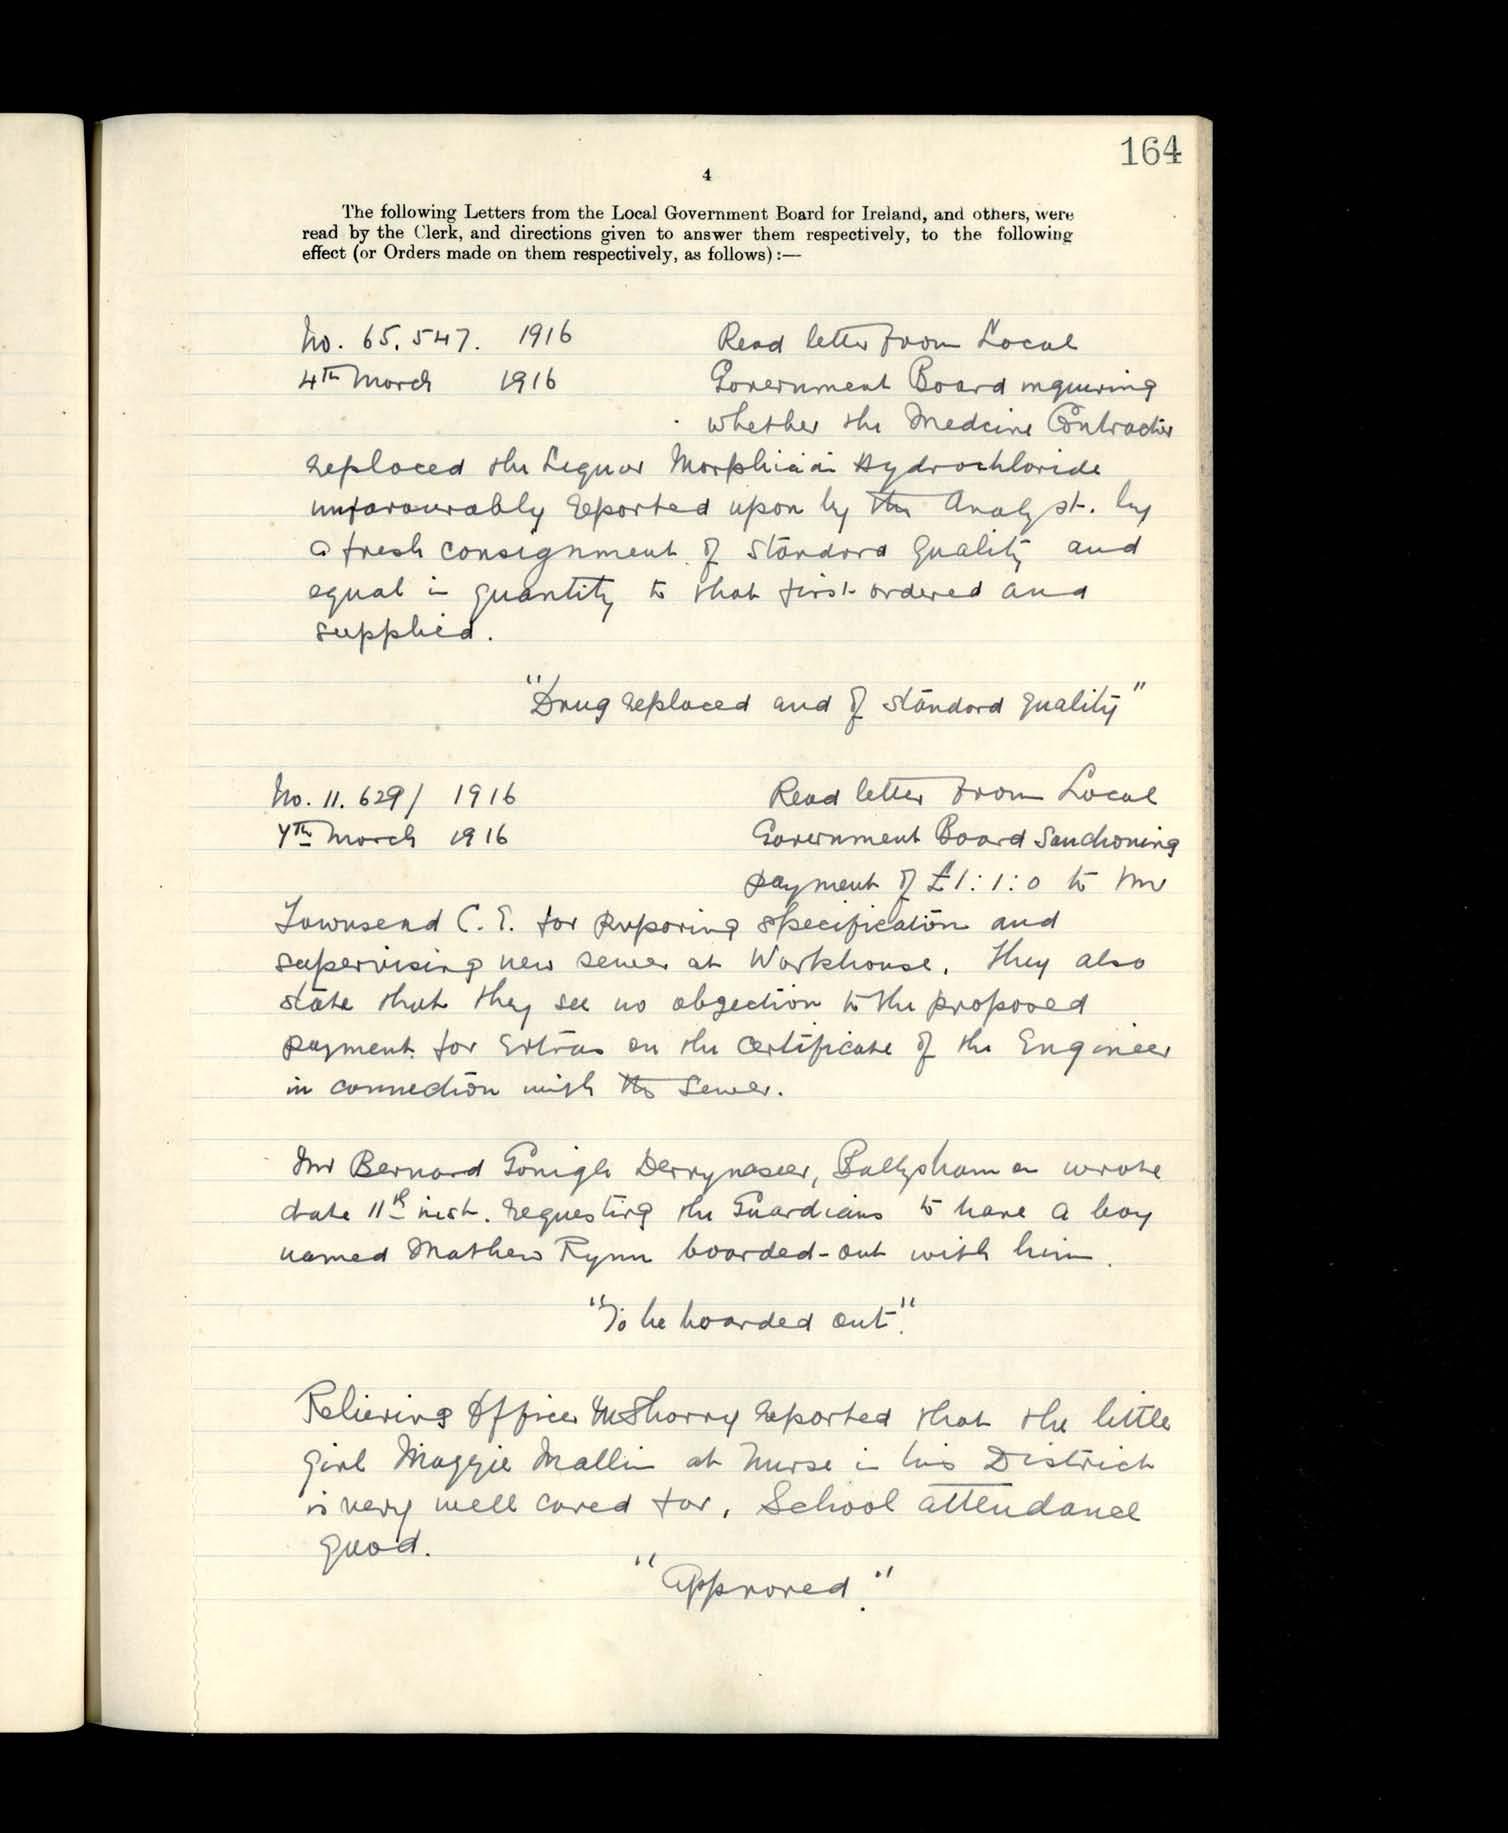 164
4
The following Letters from the Local Government Board for Ireland, and others, were
read by the Clerk, and directions given to answer them respectively, to the following
effect (or Orders made on them respectively, as follows) :—
No. 65.547. 1916 Read letter from Local
4th March 1916 Government Board inquiring
whether the Medcine Contractor
replaced the Liquor Hydrochloride
unfavourably reported upon by the Analyst. by
a fresh consignment of standard quality and
equal in quantity to that first ordered and
supplied.
"Drug replaced and of standard quality"
No. 11.629/ 1916 Read letter from Local
7th March 1916 Government Board Sanctioning
payment of £1:1:0 to Mr
Townsend C.E. for preparing specification and
supervising new sewer at Workhouse. They also
state that they see no objection to the proposed
payment for Extras on the certificate of the Engineer
in connection with the Sewer.
Mr Bernard Gonigle Ballyshannon wrote
date 11th inst. requesting the Guardians to have a boy
named Mathew Rynn boarded-out with him.
"To be boarded out".
Relieving Officer McSharry reported that the little
girl Maggie Mallin at Nurse in his District
is very well cared for, School attendance
good.
"Approved."